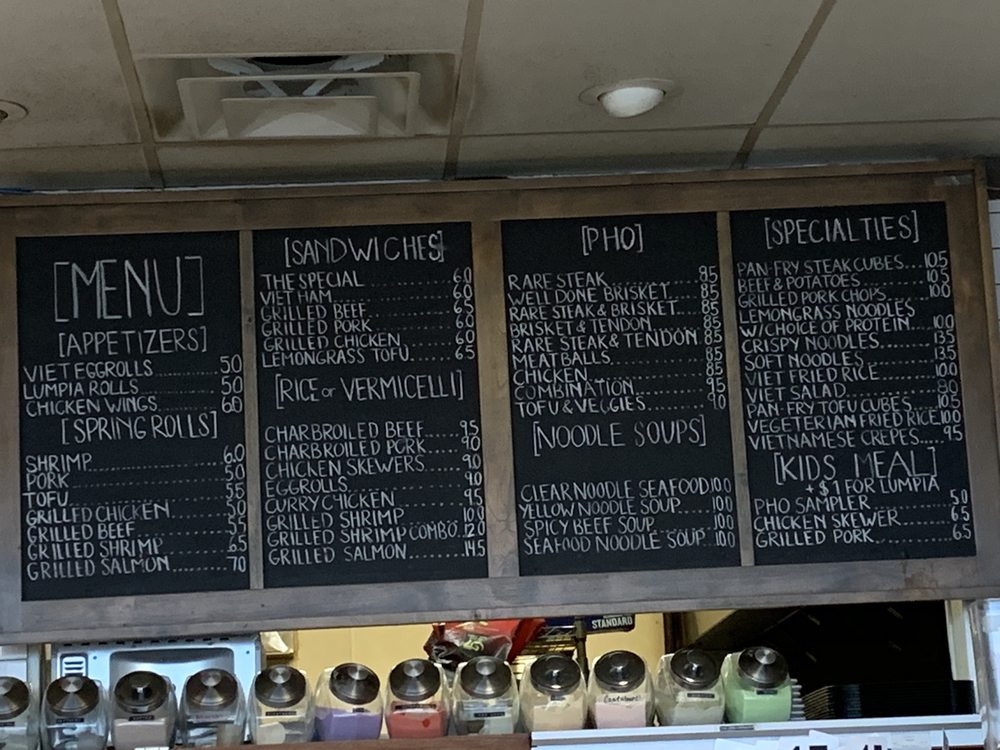 [MENU]
[APPETIZERS]
VIET EGGROLLS 5.0
LUMPIA ROLLS 5.0
CHICKEN WINGS 6.0
[SPRING ROLLS]
SHRIMP 6.0
PORK 5.0
TOFU 5.5
GRILLED CHICKEN 5.0
GRILLED BEEF 5.5
GRILLED SHRIMP 6.5
GRILLED SALMON 7.0
[SANDWICHES]
THE SPECIAL 6.0
VIET HAM 6.0
GRILLED BEEF 6.5
GRILLED PORK 6.0
GRILLED CHICKEN 6.0
LEMONGRASS TOFU 6.5
[RICE or VERMICELLI]
CHARBROILED BEEF 9.5
CHARBROILED PORK 9.0
CHICKEN SKEWERS 9.0
EGGROLLS 9.0
CURRY CHICKEN 9.5
GRILLED SHRIMP 10.0
GRILLED SHRIMP COMBO 12.0
GRILLED SALMON 14.5
[PHO]
RARE STEAK 8.5
WELL DONE BRISKET 8.5
RARE STEAK & BRISKET 8.5
BRISKET & TENDON 8.5
RARE STEAK & TENDON 8.5
MEATBALLS 8.5
CHICKEN 8.5
COMBINATION 9.5
TOFU & VEGGIES 9.0
[NOODLE SOUPS]
CLEAR NOODLE SEAFOOD 10.0
YELLOW NOODLE SOUP 10.0
SPICY BEEF SOUP 10.0
SEAFOOD NOODLE SOUP 10.0
[SPECIALTIES]
PAN-FRY STEAK CUBES 10.5
BEEF & POTATOES 10.5
GRILLED PORK CHOPS 10.0
LEMONGRASS NOODLES
W/CHOICE OF PROTEIN 10.0
CRISPY NOODLES 13.5
SOFT NOODLES 13.5
VIET FRIED RICE 10.0
VIET SALAD 8.0
PAN-FRY TOFU CUBES 10.5
VEGETERIAN FRIED RICE 10.0
VIETNAMESE CREPES 9.5
[KIDS MEAL]
+$1 FOR LUMPIA
PHO SAMPLER 5.0
CHICKEN SKEWER 6.5
GRILLED PORK 6.5
STANDARD